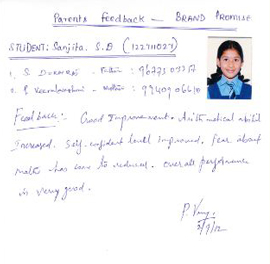 Parents Feedback - BRAND PROMISE
STUDENT: Sanjita. S.B (122711027)
1. S. - Father :
2. - Mother : 9940906610
Feedback:- Good Improvement. Arithmetical abilit
Increased. Self-confident level improved. Fear about
maths has come to reduced. overall performance
is very good.